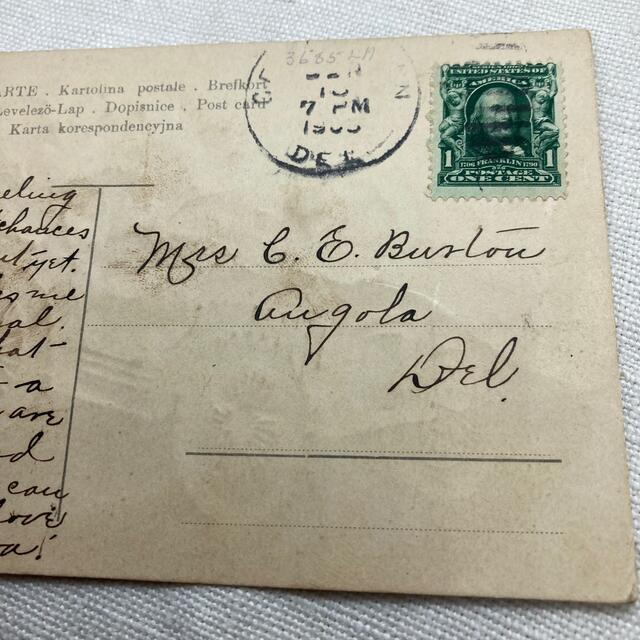 ARTE . Kartolina postale . Brefkort
Levelezö-Lap . Dopisnice . Post card
Karta korespondencyjna
3685 LA
7 PM
DEL
UNITED STATES OF
AMERICA
1 1706 FRANKLIN 1790 1
POSTAGE
ONE CENT
eling
chances
yet.
me
al.
at-
a
are
d
can
love
a!
Mrs C. E. Burton
Angola
Del.